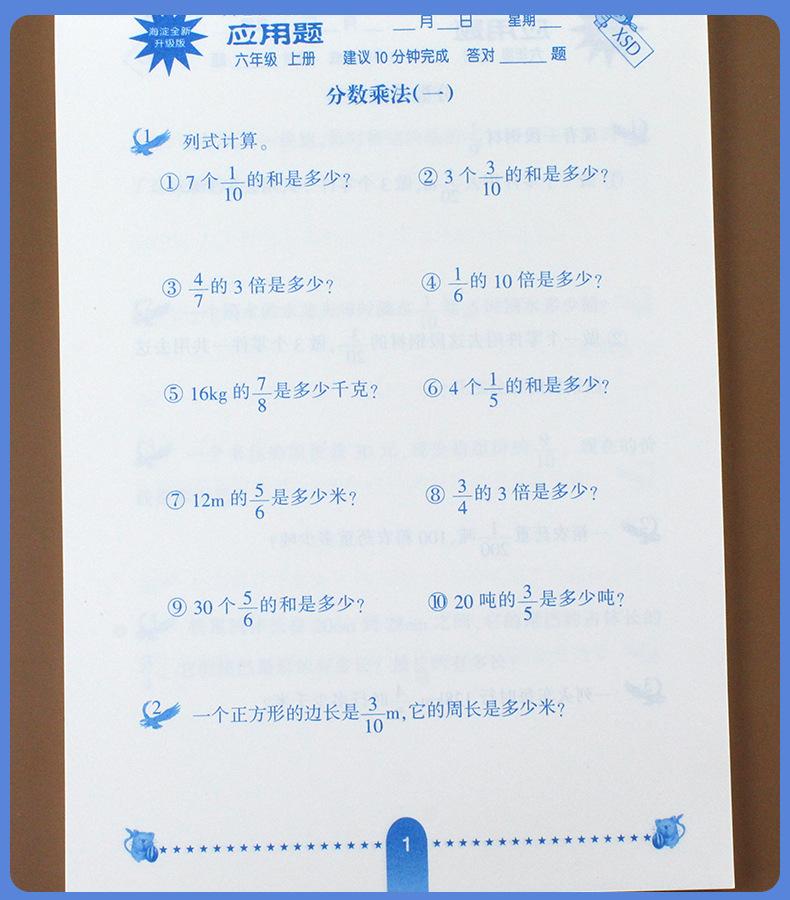 海淀全新
升级版
应用题
__月__日 星期__
XSD
六年级 上册 建议10分钟完成 答对____题
分数乘法(一)
1 列式计算。
① 7个1/10的和是多少? ② 3个3/10的和是多少?
③ 4/7的3倍是多少? ④ 1/6的10倍是多少?
⑤ 16kg的7/8是多少千克? ⑥ 4个1/5的和是多少?
⑦ 12m的5/6是多少米? ⑧ 3/4的3倍是多少?
⑨ 30个5/6的和是多少? ⑩ 20吨的3/5是多少吨?
2 一个正方形的边长是3/10m,它的周长是多少米?
1